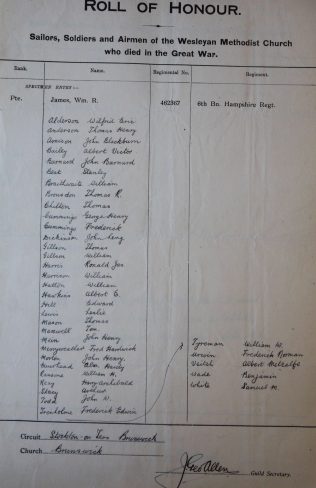 ROLL OF HONOUR.
Sailors, Soldiers and Airmen of the Wesleyan Methodist Church
who died in the Great War.
Rank. Name. Regimental No. Regiment.
SPECIMEN ENTRY:—
Pte. James, Wm. R. 462367 6th Bn. Hampshire Regt.
Alderson Wilfrid Eric
Anderson Thomas Henry
Armison John Blackburn
Bailey Albert Victor
Barnard John Barnard
Best Stanley
Braithwaite William
Brunsdon Thomas R.
Chilton Thomas
Cummings George Henry
Cummings Frederick
Dickinson John
Gillson Thomas
Gillson William
Harris Ronald Jas
Harrison William
Hatton William
Hawkins Albert E.
Hill Edward
Lewis Leslie
Mason Thomas
Maxwell Tom
Main John Henry
Fred Hardwick
Morton John Henry
Muirhead Allan Henry
Ransome William H.
Harry Archibald
Stacy Arthur
Todd John W.
Trenholme Frederick Edwin
Tyreman William W.
Unwin Frederick Norman
Veitch Albert Metcalfe
Wade Benjamin
White Samuel M.
Circuit Stockton-on-Tees Brunswick
Church Brunswick
Allen Guild Secretary.